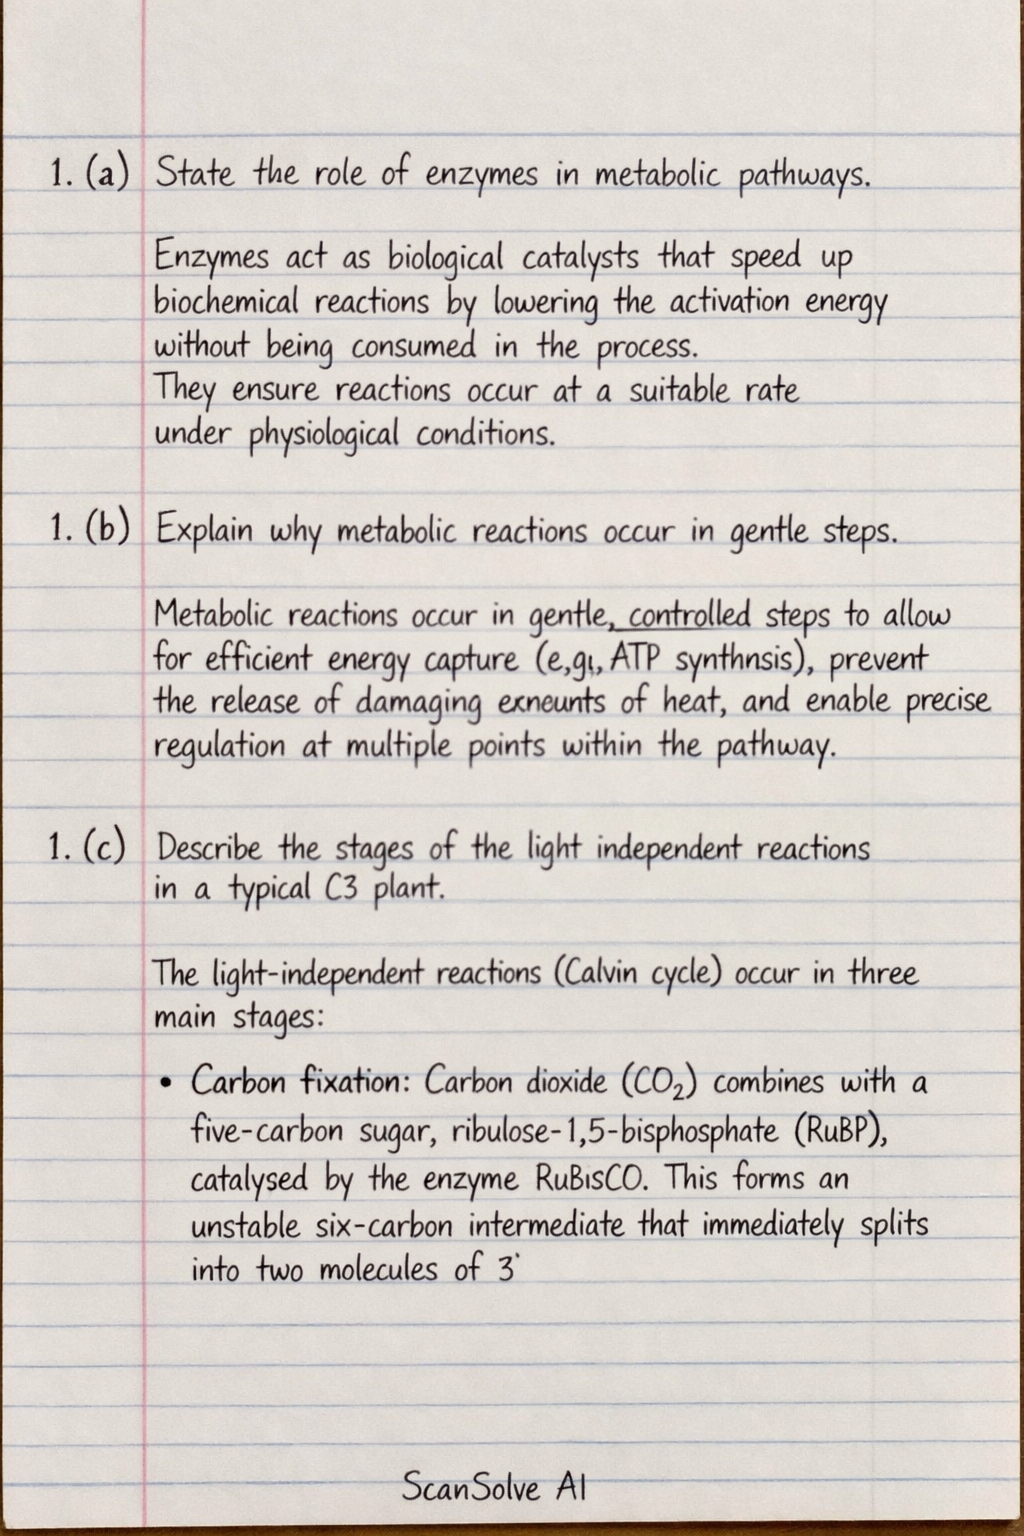 1. (a) State the role of enzymes in metabolic pathways.
Enzymes act as biological catalysts that speed up
biochemical reactions by lowering the activation energy
without being consumed in the process.
They ensure reactions occur at a suitable rate
under physiological conditions.
1. (b) Explain why metabolic reactions occur in gentle steps.
Metabolic reactions occur in gentle, controlled steps to allow
for efficient energy capture (e,g, ATP synthnsis), prevent
the release of damaging exneunts of heat, and enable precise
regulation at multiple points within the pathway.
1. (c) Describe the stages of the light independent reactions
in a typical C3 plant.
The light-independent reactions (Calvin cycle) occur in three
main stages:
• Carbon fixation: Carbon dioxide (CO₂) combines with a
five-carbon sugar, ribulose-1,5-bisphosphate (RuBP),
catalysed by the enzyme RuBisCO. This forms an
unstable six-carbon intermediate that immediately splits
into two molecules of 3
ScanSolve AI